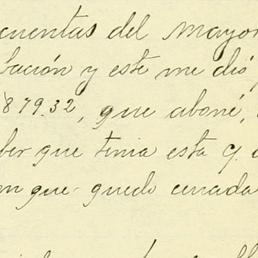 cuentas del Mayor
bación y este me dió
879.32, que aboné,
ber que tenia esta y
n que quedo cerrada